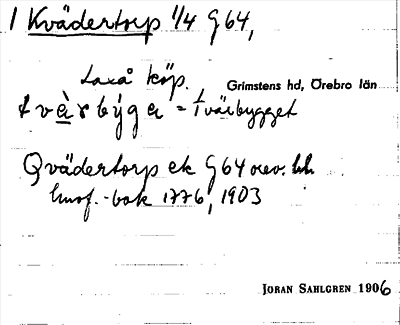 1 Kvädertorp 1/4 G 64,
Laxå köp.
Grimstens hd, Örebro län
tvèrbýga = Tvärbygget
Qvädertorp ek G 64 orev. hh
husf.-bok 1776, 1903
JÖRAN SAHLGREN 1906